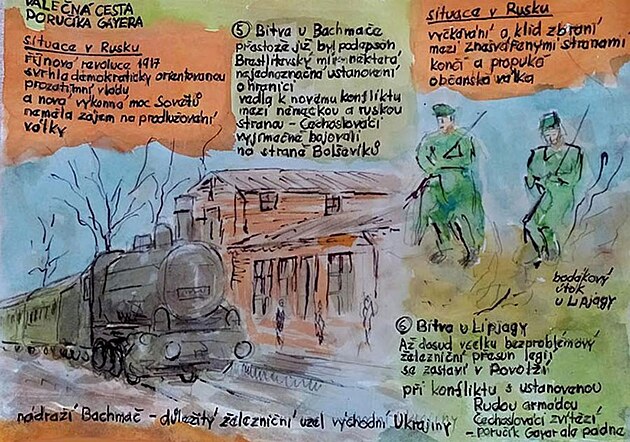 VÁLEČNÁ CESTA
PORUČÍKA GAYERA
Situace v Rusku
Říjnová revoluce 1917
svrhla demokraticky orientovanou
prozatímní vládu
a nová výkonná moc Sovětů
neměla zájem na prodlužování
války
⑤ Bitva u Bachmače
přestože již byl podepsán
Brestlitevský mír některá
nejednoznačná ustanovení
o hranici
vedla k novému konfliktu
mezi německou a ruskou
stranou - Čechoslováci
vyjímačně bojovali
na straně Bolševiků
situace v Rusku
vyčkávání a klid zbraní
mezi znesvářenými stranami
končí a propuká
občanská válka
bodákový
útok
u Lipjagy
⑥ Bitva u Lipjagy
Až dosud vcelku bezproblémový
železniční přesun legií
se zastaví v Povolží
při konfliktu s ustanovenou
Rudou armádou
Čechoslováci zvítězí
- poručík Gayer ale padne
nádraží Bachmač - důležitý železniční uzel východní Ukrajiny